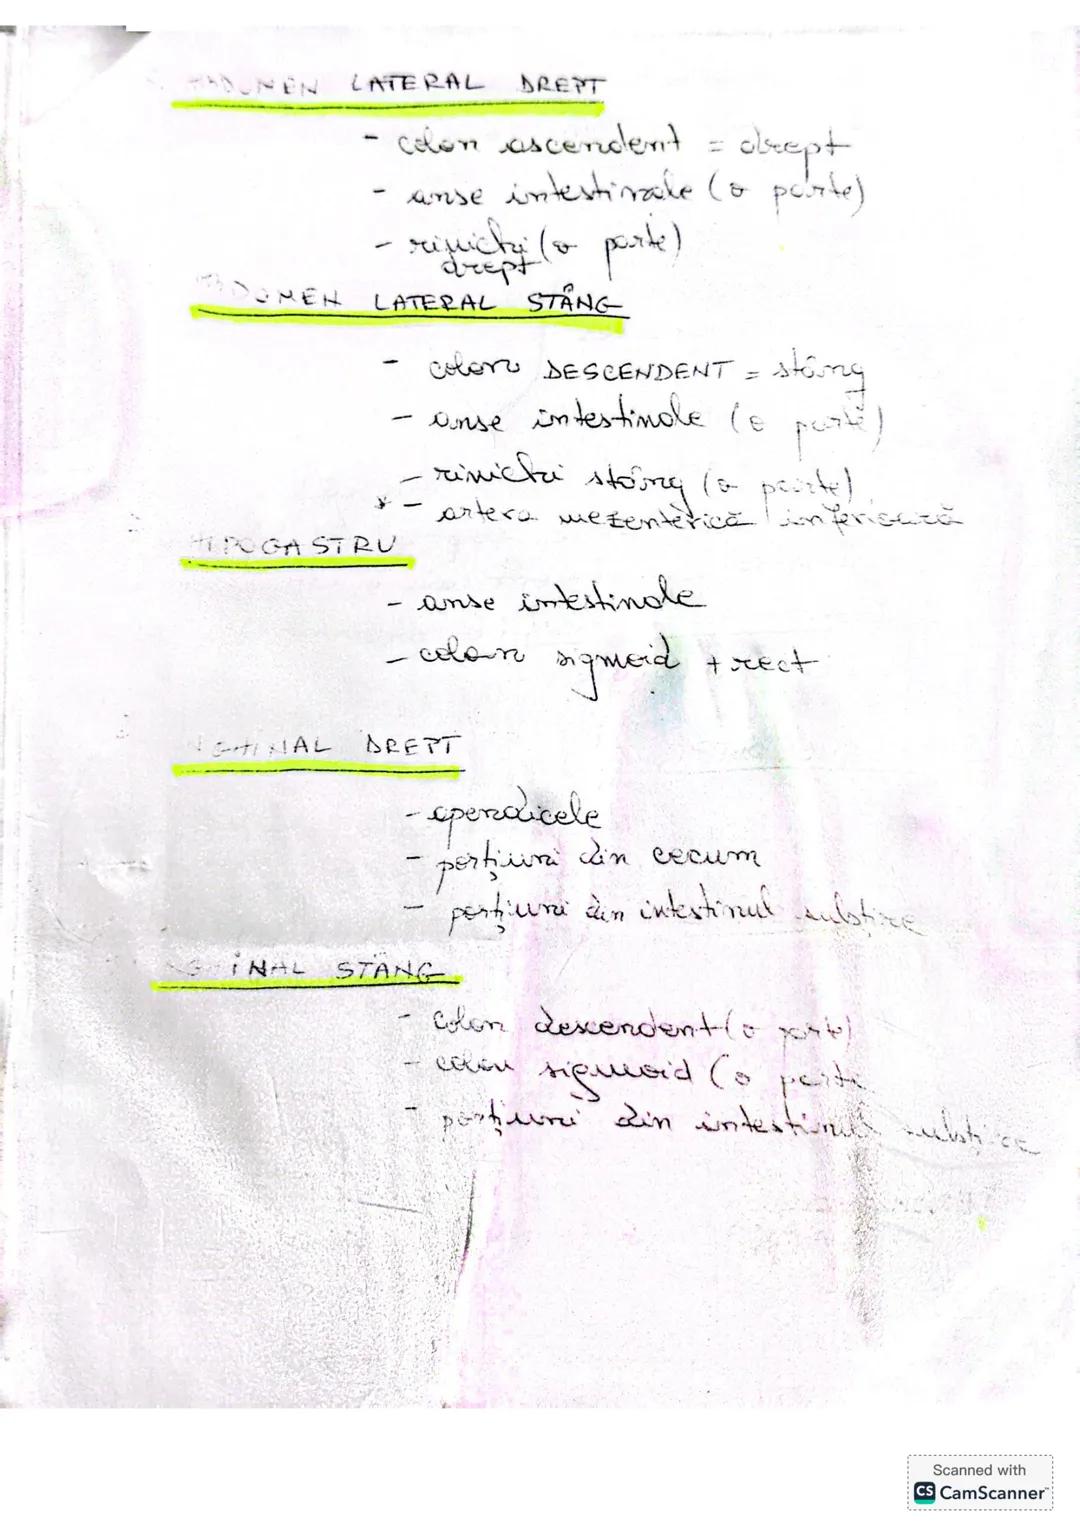 ABDOMEN LATERAL DREPT
- colon ascendent = drept
- anse intestinale (o parte)
- rinichi (o parte)
drept
ABDOMEN LATERAL STÂNG
- colon DESCENDENT = stâng
- anse intestinale (o parte)
- rinichi stâng (o parte)
* - artera mezenterică inferioară
HIPOGASTRU
- anse intestinale
- colon sigmoid + rect
INGHINAL DREPT
- apendicele
- porțiuni din cecum
- porțiuni din intestinul subțire
INGHINAL STÂNG
- colon descendent (o parte)
- colon sigmoid (o parte
- porțiuni din intestinul subțire
Scanned with
CS CamScanner